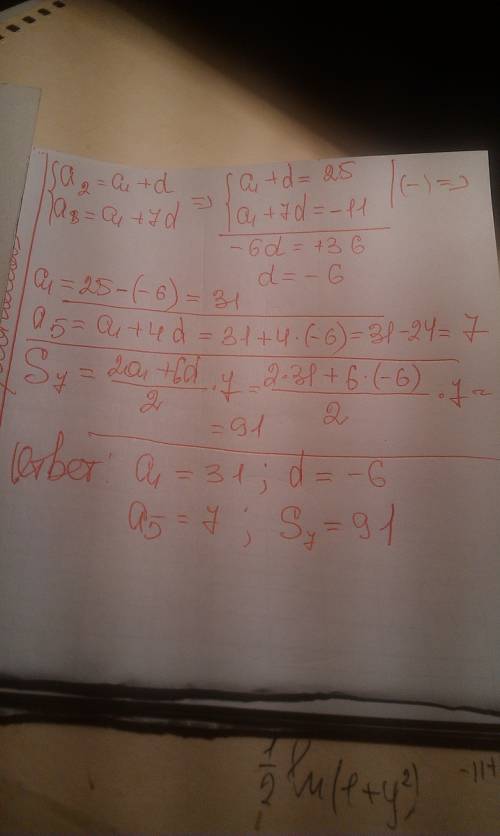 {a₂ = a₁ + d => {a₁ + d = 25 |(-) =>
{a₈ = a₁ + 7d {a₁ + 7d = -11
-6d = +36
d = -6
a₁ = 25 - (-6) = 31
a₅ = a₁ + 4d = 31 + 4·(-6) = 31 - 24 = 7
S₇ = (2a₁ + 6d)/2 · 7 = (2·31 + 6·(-6))/2 · 7 =
= 91
Ответ: a₁ = 31 ; d = -6
a₅ = 7 ; S₇ = 91
1/2 ln(1+y²)